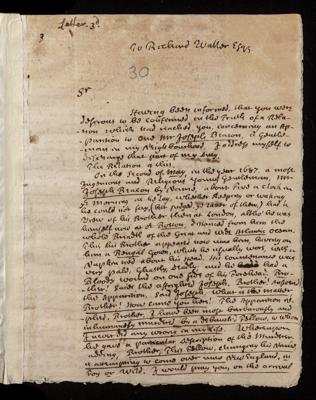 Letter. 3d
3
To Richard Waller Esqr.
30
Sr
Having been informed, that you were
desirous to be confirmed in the Truth of a Rela-
tion which had reached you, concerning an Ap-
parition to one Mr Joseph Beacon, a Gentle-
man in my Neighbourhood, I address myself to
discharge that part of my
The Relation is this.
On the Second of May, in the year 1687, a most
Ingenious and Religious young Gentleman, Mr
Joseph Beacon by Name, about Five a clock in
ye Morning as he lay, whether sleeping or waking
he could not say, (but judged ye latter of them,) had a
View of his Brother then at London, altho' he was
himself now at a Boston, distanced from him the
whole Bredth of the Great and Wide Atlantic Ocean.
This his Brother appear'd now unto him, having on
him a Bengal Gown, which he usually wore, with a
Napkin tied about his Head. His Countenance was
very pale, Ghastly, deadly, and he had a
Bloody Wound on one side of his Forehead. Bro-
ther! Saies the affrighted Joseph. Brother! answer'd
the Apparition. Said Joseph, What's ye matter
Brother! How came you here! The Apparition re-
plied, Brother, I have been most barbarously and
inhumanely murdered by a debauch'd Fellow, to whom
I never did any wrong in my Life. Whereupon
he gave a particular description of the Murderer;
adding, Brother, This Fellow, changing his Name,
is attempting to come over unto New England, in
Foy or Wild. I would pray you on the arrival